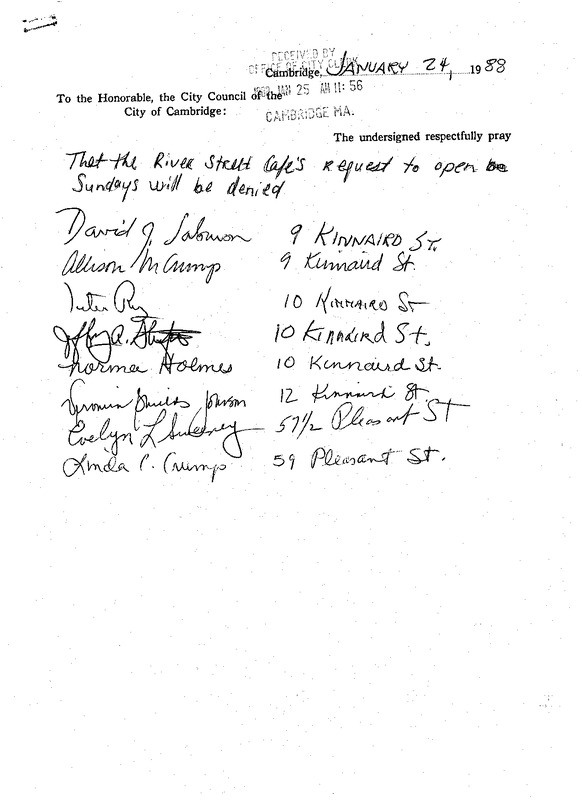 RECEIVED BY
OFFICE OF CITY CLERK
Cambridge, JANUARY 24, 1988
To the Honorable, the City Council of the
JAN 25 AM 11:56
City of Cambridge:
CAMBRIDGE MA.
The undersigned respectfully pray
That the River Street Cafe's request to open
Sundays will be denied
David J. Salomon 9 KINNAIRD ST.
Allison M Crump 9 Kinnaird St.
10 KINNAIRD ST
10 Kinnaird St.
Norma Holmes 10 Kinnaird St.
Johnson 12 Kinnaird St.
Evelyn L Sweeney 57 1/2 Pleasant ST
Linda C. Crump 59 Pleasant St.